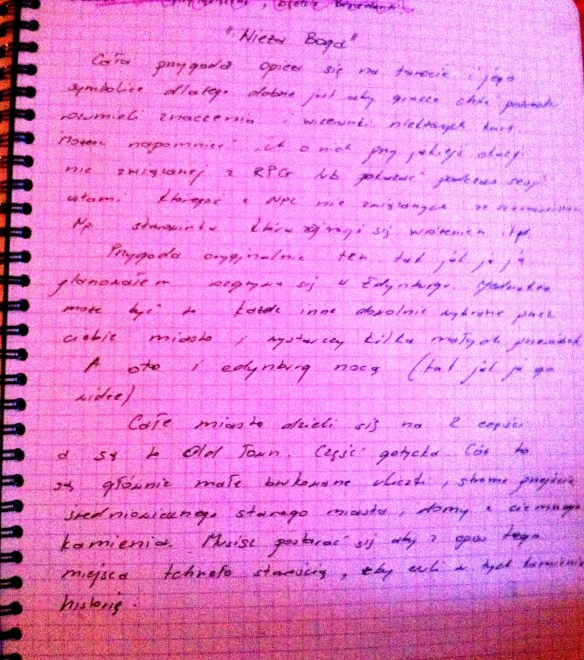 "Wieża Boga"
Cała przygoda opiera się na tarocie i jego
symbolice dlatego dobrze jest aby gracze choć
rozumieli znaczenia i wizerunki niektórych kart.
Możesz napomnieć o nich przy jakiejś okazji
nie związanej z RPG lub pokazać podczas sesji
ustami któregoś z NPC nie związanych ze scenariuszem
Np staruszka która zajmuje się wróżeniem itp.
Przygoda oryginalnie ten tak jak ja ją
planowałem rozgrywa się w Edynburgu. Jednakże
może być to każde inne dowolnie wybrane przez
ciebie miasto i wystarczy kilka małych
A oto i edynburg nocą (tak jak ja go
widzę)
Całe miasto dzieli się na 2 części
a są to Old Town. Część gotycka. Cóż to
są głównie małe brukowane uliczki, strome przejścia
średniowiecznego starego miasta, domy z ciemnego
kamienia. Musisz postarać się aby z opisu tego
miejsca tchnęło starością, żeby czuli w tych kamieniach
historię.